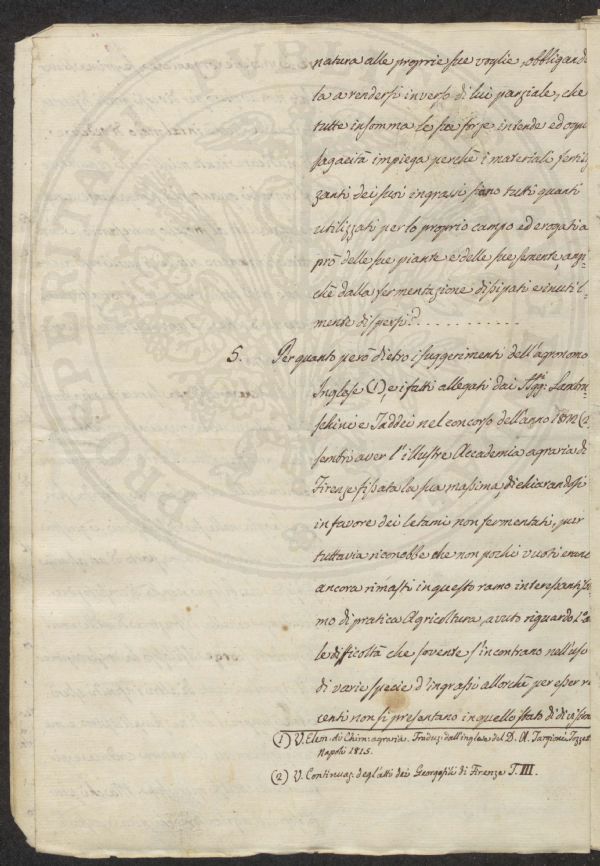 natura alle proprie sue voglie, obbligando
la a rendersi inverso di lui parziale, che
tutte insomma le sue forze intende ed ogni
sagacità impiega perchè i materiali fertiliz
zanti dei suoi ingrassi siano tutti quanti
utilizzati per lo proprio campo ed erogati a
prò delle sue piante e delle sue semente, anzi-
chè dalla fermentazione dissipati e inutil-
mente dispersi? . . . . . . . . . .
5. Per quanto però dietro i suggerimenti dell'agronomo
Inglese (1), e i fatti allegati dai Sigg: Lambru
schini e Taddei nel concorso dell'anno (2)
sembri aver l'illustre Accademia agraria di
Firenze fissata la sua massima, dichiarandosi
in favore dei letami non fermentati, pur
tuttavia riconobbe che non pochi vuoti erano
ancora rimasti in questo ramo interessantissi
mo di pratica Agricoltura, avuto riguardo
le difficoltà che sovente s'incontrano nell'uso
di varie specie d'ingrassi allorchè per esser re
centi non si presentano in quello stato di
(1) V. Elem. di Chim: agraria. Traduz: dall'inglese del D. A. Targioni Tozzetti
Napoli 1815.
(2) V. Continuaz. degl'atti dei Georgofili di Firenze T. III.
PROSPERITATI PUBLICAE